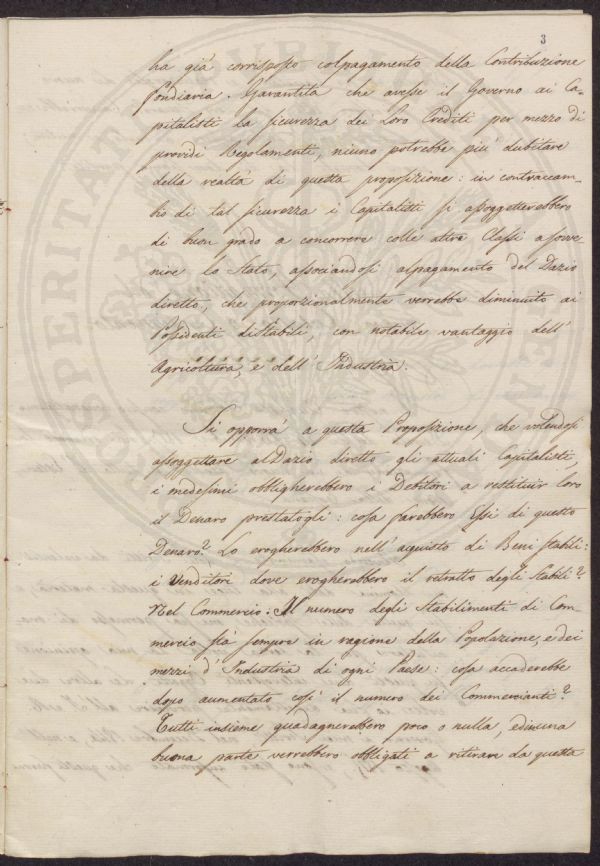 3
ha già corrisposto col pagamento della Contribuzione
fondiaria. Garantita che avesse il Governo ai Ca-
pitalisti la sicurezza dei Loro Crediti per mezzo di
providi Regolamenti, niuno potrebbe più dubitare
della realtà di questa proposizione: in contraccam-
bio di tal sicurezza i Capitalisti si assoggetterebbero
di buon grado a concorrere colle altre Classi a sovve-
nire lo Stato, associandosi al pagamento del Dazio
diretto, che proporzionalmente verrebbe diminuito ai
Possidenti di Stabili, con notabile vantaggio dell'
Agricoltura, e dell' Industria.
Si opporrà a questa Proposizione, che volendosi
assoggettare al Dazio diretto gli attuali Capitalisti,
i medesimi obbligherebbero i Debitori a restituir loro
il Denaro prestatogli: cosa farebbero Essi di questo
Denaro? Lo erogherebbero nell'acquisto di Beni stabili:
i Venditori dove erogherebbero il retratto degli Stabili?
Nel Commercio. Il numero degli Stabilimenti di Com-
mercio stà sempre in ragione della Popolazione, e dei
mezzi d'Industria di ogni Paese: cosa accaderebbe
dopo aumentato così il numero dei Commercianti?
Tutti insieme guadagnerebbero poco o nulla, ed in una
buona parte verrebbero obbligati a ritirare da questa